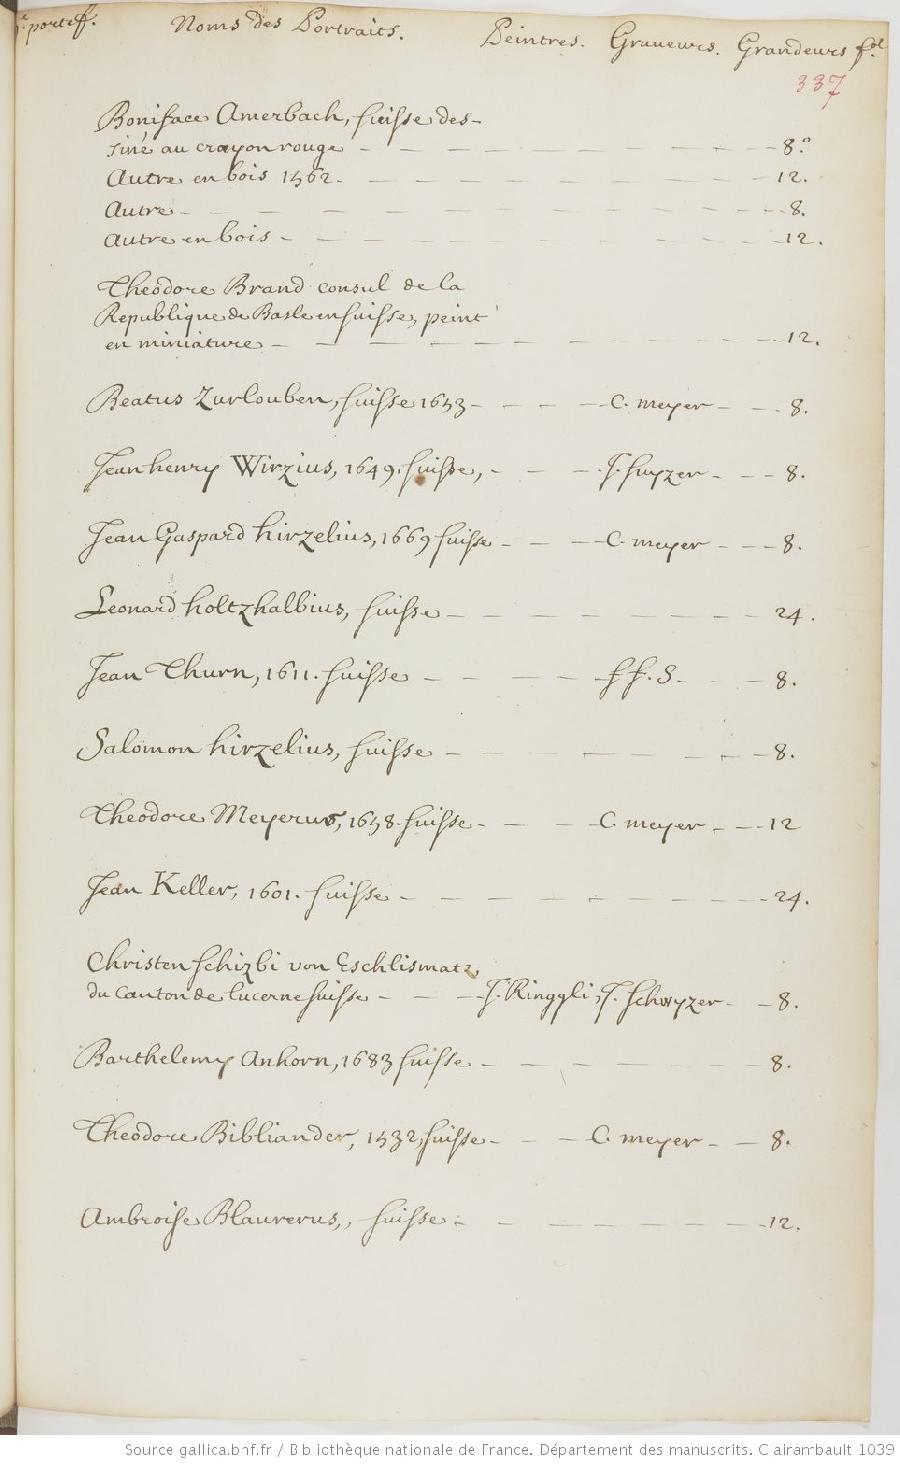 portef. Noms des Portraits. Peintres. Graveurs. Grandeurs fol.
337
Boniface Amerbach, suisse des-
siné au crayon rouge - - - - - - 8.°
Autre en bois 1562. - - - - - - 12.
Autre - - - - - - 8.
Autre en bois - - - - - - 12.
Theodore Brand consul de la
Republique de Basle en suisse, peint
en miniature - - - - - - 12.
Beatus Zurlouben, suisse 1653 - - - C. meyer - - 8.
Jean henry Wirzius, 1649. suisse, - - - J. suyzer - - 8.
Jean Gaspard hirzelius, 1669 suisse - - - C. meyer - - 8.
Leonard holtzhalbius, suisse - - - - - - 24.
Jean Thurn, 1611. suisse - - - - ff. S. - - 8.
Salomon hirzelius, suisse - - - - - 8.
Theodore Meyerus, 1658. suisse - - - C. meyer - - 12
Jean Keller, 1601. suisse - - - - - - 24.
Christen schizbi von Eschlismatz,
du Canton de lucerne suisse - - - J. Ringgli, J. schwyzer - - 8.
Barthelemy Anhorn, 1683 suisse. - - - - - 8.
Theodore Bibliander, 1532, suisse - - - C. meyer - - 8.
Ambroise Blaurerus, suisse - - - - - 12.
Source gallica.bnf.fr / Bibliothèque nationale de France. Département des manuscrits. Clairambault 1039